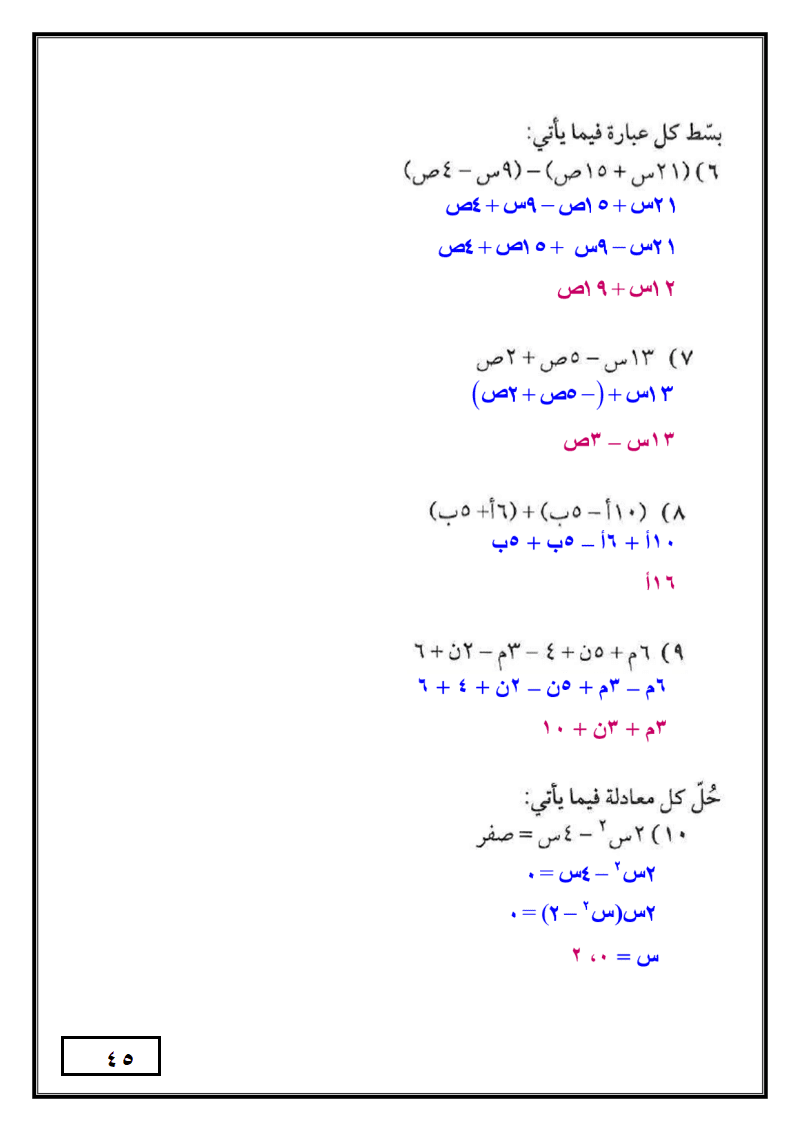 بسّط كل عبارة فيما يأتي:
٦) (٢١س + ١٥ص) – (٩س – ٤ص)
٢١س + ١٥ص – ٩س + ٤ص
٢١س – ٩س + ١٥ص + ٤ص
١٢س + ١٩ص
٧) ١٣س – ٥ص + ٢ص
١٣س + (–٥ص + ٢ص)
١٣س – ٣ص
٨) (١٠أ – ٥ب) + (٦أ + ٥ب)
١٠أ + ٦أ – ٥ب + ٥ب
١٦أ
٩) ٦م + ٥ن + ٤ – ٣م – ٢ن + ٦
٦م – ٣م + ٥ن – ٢ن + ٤ + ٦
٣م + ٣ن + ١٠
حُلّ كل معادلة فيما يأتي:
١٠) ٢س٢ – ٤س = صفر
٢س٢ – ٤س = ٠
٢س(س٢ – ٢) = ٠
س = ٠، ٢
٤٥